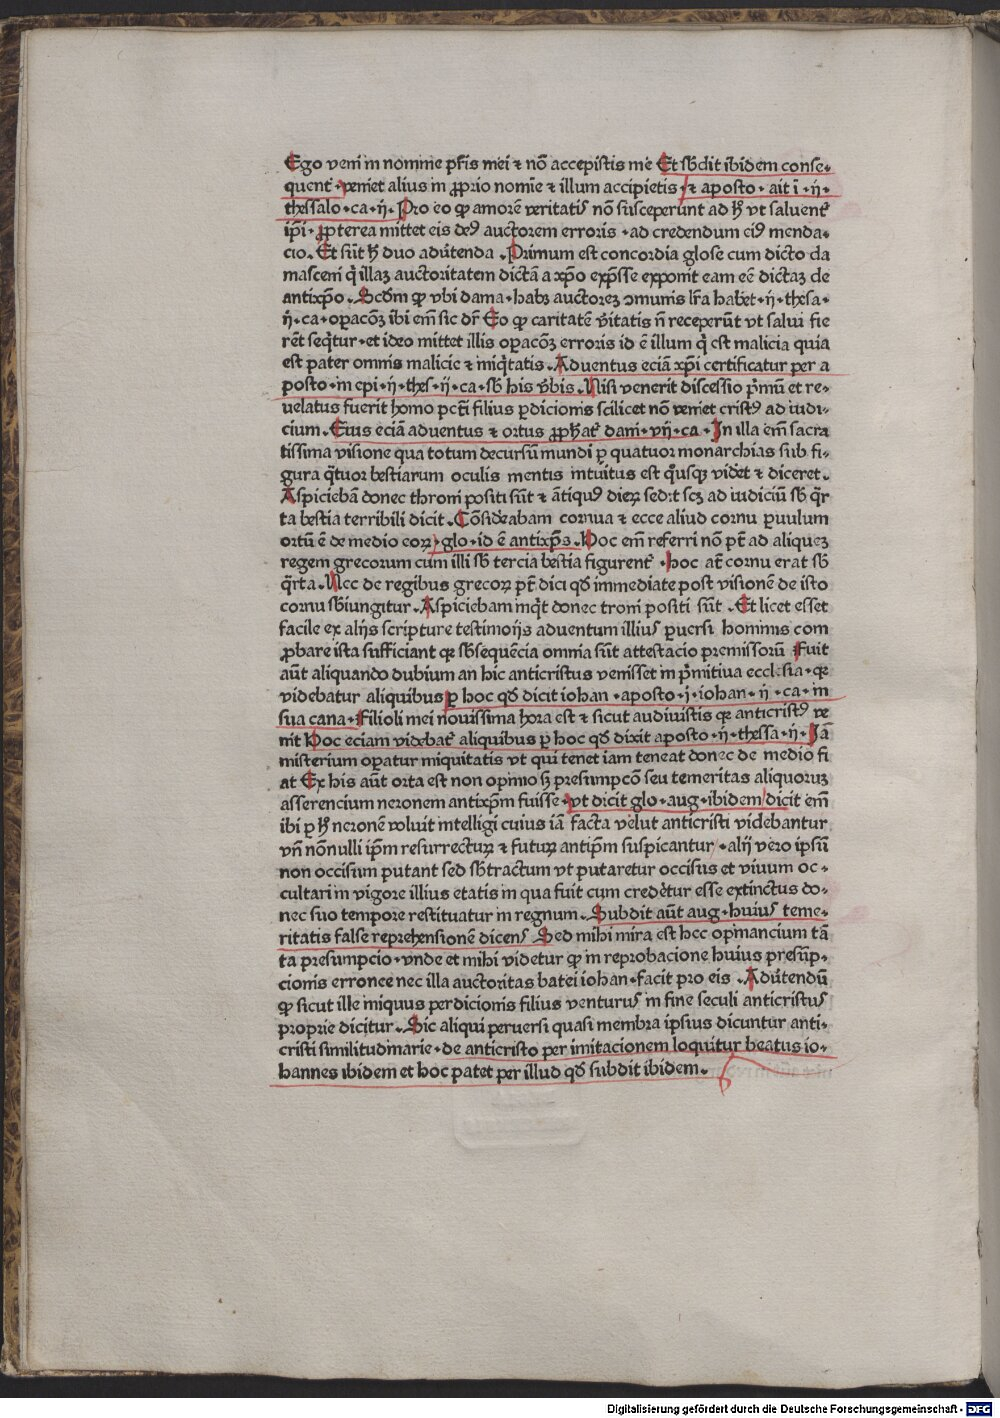 Ego veni in nomine pr̄is mei ⁊ nō accepistis me Et sb̄dit ibidem conse⸗
quent᷑ · veniet alius in ꝓprio nomīe ⁊ illum accipietis · ⁊ aposto · ait ī · ij ·
thessalo · ca · ij · Pro eo ꝙ amorē veritatis nō susceperunt ad hͦ vt saluent᷑
ip̄i · ꝓpterea mittet eis deꝰ auctorem erroris · ad credendum eiꝰ menda⸗
cio · Et sūt hͦ duo adūtenda · Primum est concordia glose cum dicto da
masceni q̄ illaꝫ auctoritatem dictā a xp̄o exp̄sse exponit eam eē dictaꝫ de
antixp̄o · Scd̄m ꝙ vbi dama · habꝫ auctoreꝫ ꝯmunis lr̄a habet · ij · thesa ·
ij · ca · oꝑacōꝫ ibi em̄ sic dr̄ Eo ꝙ caritatē v̄itatis n̄ receperūt vt salui fie
rēt seq̄tur · et ideo mittet illis oꝑacōꝫ erroris id ē illum q̄ est malicia quia
est pater omnis malicie ⁊ iniq̄tatis · Aduentus eciā xp̄i certificatur per a
posto · in epi · ij · thes · ij · ca · sb̄ his v̄bis · Nisi venerit discessio p̄mū et re⸗
uelatus fuerit homo pctī filius ꝑdicionis scilicet nō veniet cristꝰ ad iudi⸗
cium · Eius eciā aduentus ⁊ ortus ꝓphat᷑ dani · vij · ca · In illa em̄ sacra
tissima visione qua totum decursū mundi ꝑ quatuor monarchias sub fi⸗
gura q̄tuor bestiarum oculis mentis intuitus est q̄usqꝫ videt ⁊ diceret ·
Aspiciebā donec throni positi sūt ⁊ ātiquꝰ dieꝝ sedit scꝫ ad iudiciū sb̄ q̄r
ta bestia terribili dicit · Cōsideabam cornua ⁊ ecce aliud cornu ꝑuulum
ortū ē de medio eoꝝ · glo · id ē antixp̄s · Hoc em̄ referri nō pt̄ ad aliqueꝫ
regem grecorum cum illi sb̄ tercia bestia figurent᷑ · hoc at̄ cornu erat sb̄
q̄rta · Nec de regibus grecoꝝ pt̄ dici qd̄ immediate post visionē de isto
cornu sb̄iungitur · Aspiciebam inq̄t donec troni positi sūt · Et licet esset
facile ex alijs scripture testimonijs aduentum illius ꝑuersi hominis com
ꝓbare ista sufficiant qꝛ sb̄sequēcia omnia sūt attestacio premissorū Fuit
aūt aliquando dubium an hic anticristus venisset in p̄mitiua ecclesia · qꝛ
videbatur aliquibus ꝑ hoc qd̄ dicit iohan · aposto · j · iohan · ij · ca · in
sua cana · Filioli mei nouissima hora est ⁊ sicut audiuistis qꝛ anticristꝰ ve
nit Hoc eciam videbat᷑ aliquibus ꝑ hoc qd̄ dixit aposto · ij · thessa · ij · Iā
misterium oꝑatur iniquitatis vt qui tenet iam teneat donec de medio fi
at Ex his aūt orta est non opinio sꝫ presumpcōn seu temeritas aliquoruꝫ
asserencium neronem antixp̄m fuisse · vt dicit glo · aug · ibidem dicit em̄
ibi ꝑ hͦ neronē voluit intelligi cuius iā facta velut anticristi videbantur
vn̄ nōnulli ip̄m resurrecturꝫ ⁊ futurꝫ antip̄m suspicantur · alij vero ipsū
non occisum putant sed sb̄tractum vt putaretur occisus et viuum oc⸗
cultari in vigore illius etatis in qua fuit cum crederetur esse extinctus do⸗
nec suo tempore restituatur in regnum · Subdit aūt aug · huius teme⸗
ritatis false reprehensionē dicens Sed mihi mira est hec opinancium tā
ta presumpcio · vnde et mihi videtur ꝙ in reprobacione huius presūp⸗
cionis erronee nec illa auctoritas batei iohan · facit pro eis · Adūtendū
ꝙ sicut ille iniquus perdicionis filius venturus in fine seculi anticristus
proprie dicitur · Sic aliqui peruersi quasi membra ipsius dicuntur anti⸗
cristi similitudinarie · de anticristo per imitacionem loquitur beatus io⸗
hannes ibidem et hoc patet per illud qd̄ subdit ibidem ·
Digitalisierung gefördert durch die Deutsche Forschungsgemeinschaft - DFG